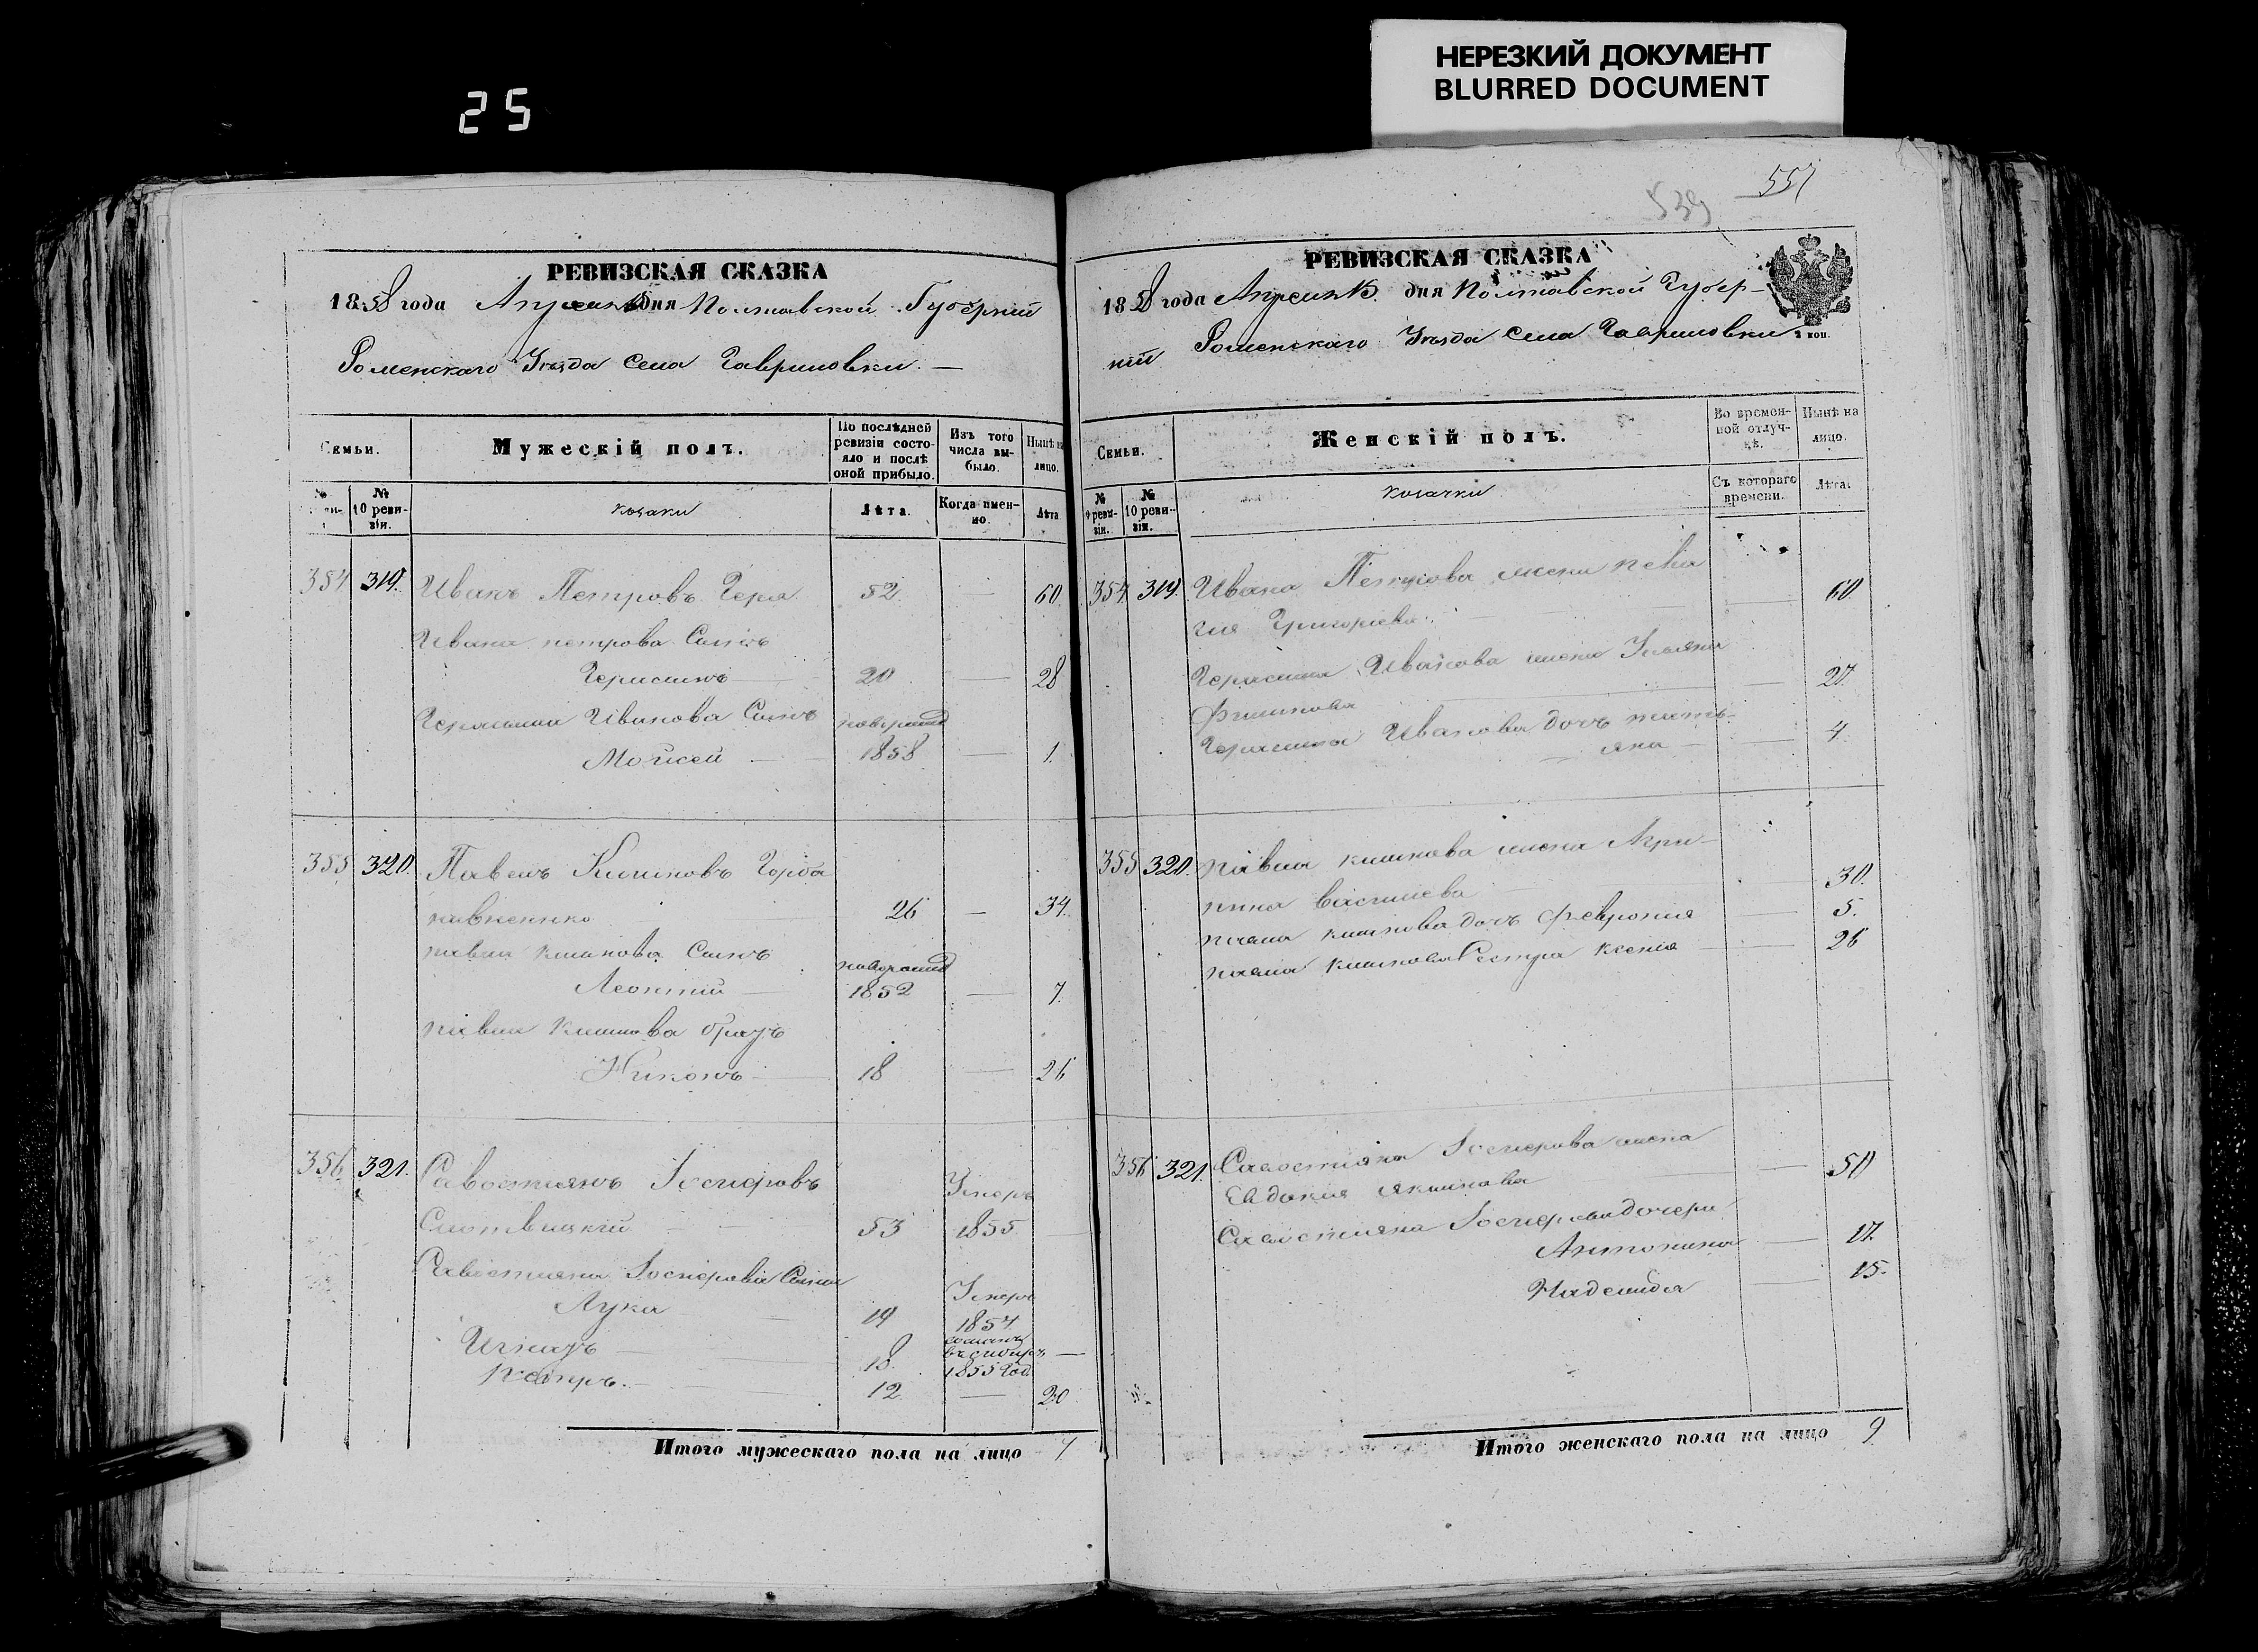 НЕРЕЗКИЙ ДОКУМЕНТ
BLURRED DOCUMENT
25
РЕВИЗСКАЯ СКАЗКА
1858 года Апреля дня Полтавской Губерніи
Роменскаго Уезда Села Гавриловки
Семьи.
Мужескій полъ.
По послѣдней ревизіи состояло и послѣ оной прибыло.
Изъ того числа выбыло.
Нынѣ на лицо.
№ 10 ревизіи.
козаки
Лѣта.
Когда именно.
Лѣта
354 319. Иванъ Петровъ Гера 52. 60
Ивана петрова Сынъ
Герасимъ 20 28
Герасима Иванова Сынъ
Мойсей 1858 1.
355 320. Павелъ Климовъ Горба
26 34.
павла климова Сынъ
Леонтій 1852 7.
павла климова братъ
Никонъ 18 26
356 321. Савостиянъ Іосифовъ Умеръ
53 1855
Савостияна Іосифова Сыны
Лука 19 Умеръ 1854
Игнатъ 18. въ сибирь 1855 год
12 20
Итого мужескаго пола на лицо 7
539 557
РЕВИЗСКАЯ СКАЗКА
1858 года Апреля дня Полтавской Губер-
ніи Роменскаго Уезда Села Гавриловки
2 коп.
Семьи.
Женскій полъ.
Во временной отлучкѣ.
Нынѣ на лицо.
№ 9 ревизіи.
№ 10 ревизіи.
козачки
Съ котораго времени.
Лѣта.
354 319. Ивана Петрова жена пела
гия Григорьева 60
Герасима Иванова жена Ульяна
27.
Герасима Иванова дочь татьяна
4.
355 320. павла климова жена Агри-
пина Василиева 30.
павла климова дочь феврония 5.
павла климова Сестра ксения 26
356 321. Савостияна Іосифова жена
Евдокия якимова 50
Савостияна Іосифова дочери
Антонина 17.
Надежда 15.
Итого женскаго пола на лицо 9